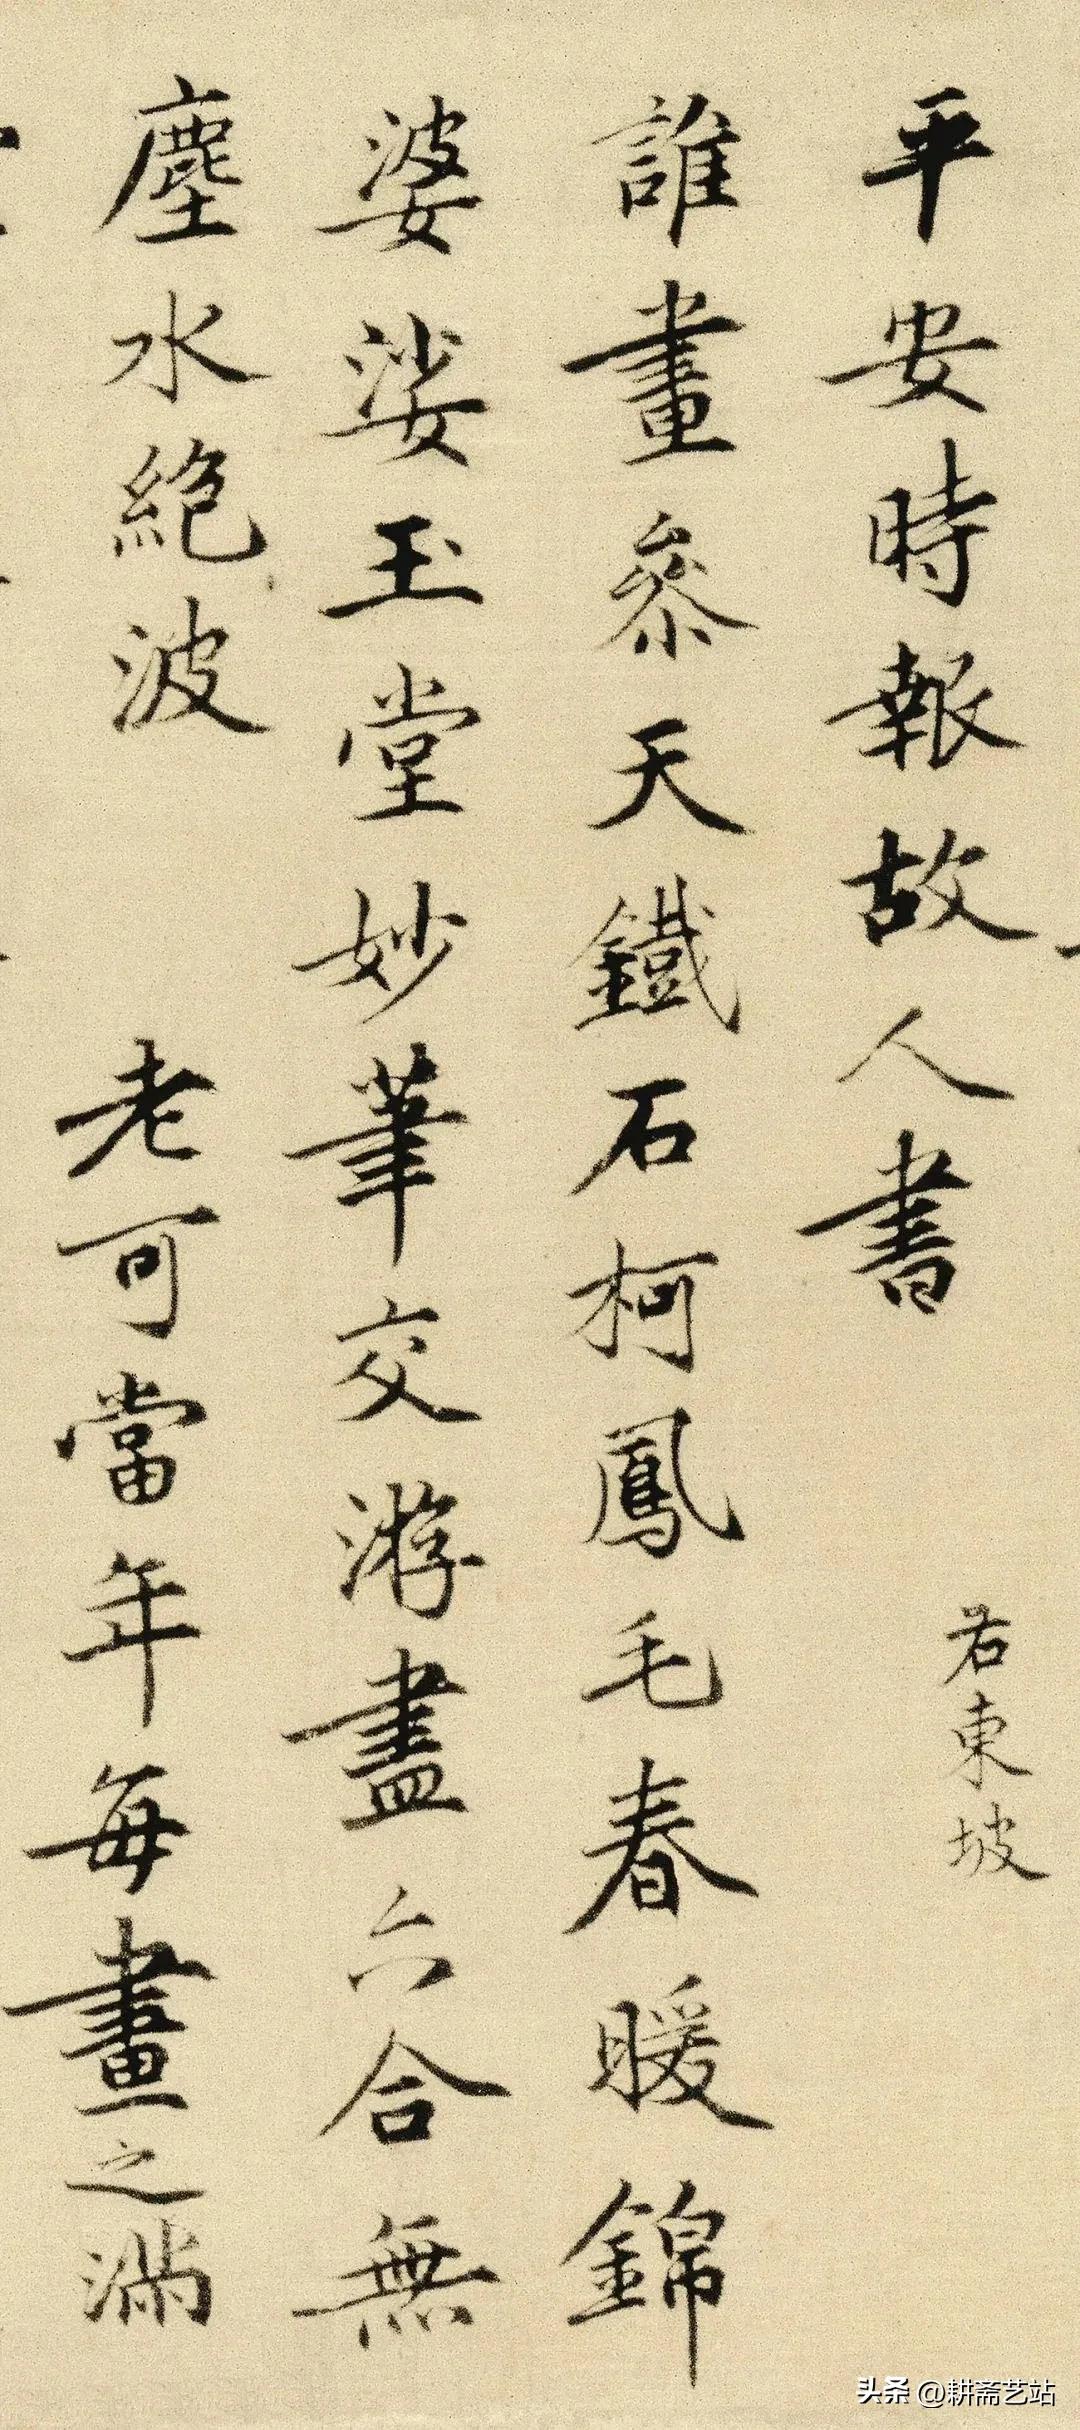 平安時報故人書
右東坡
誰畫參天鐵石柯鳳毛春暖錦
婆娑玉堂妙筆交游盡六合無
塵水絕波
老可當年每畫之滿
头条 @耕斋艺站